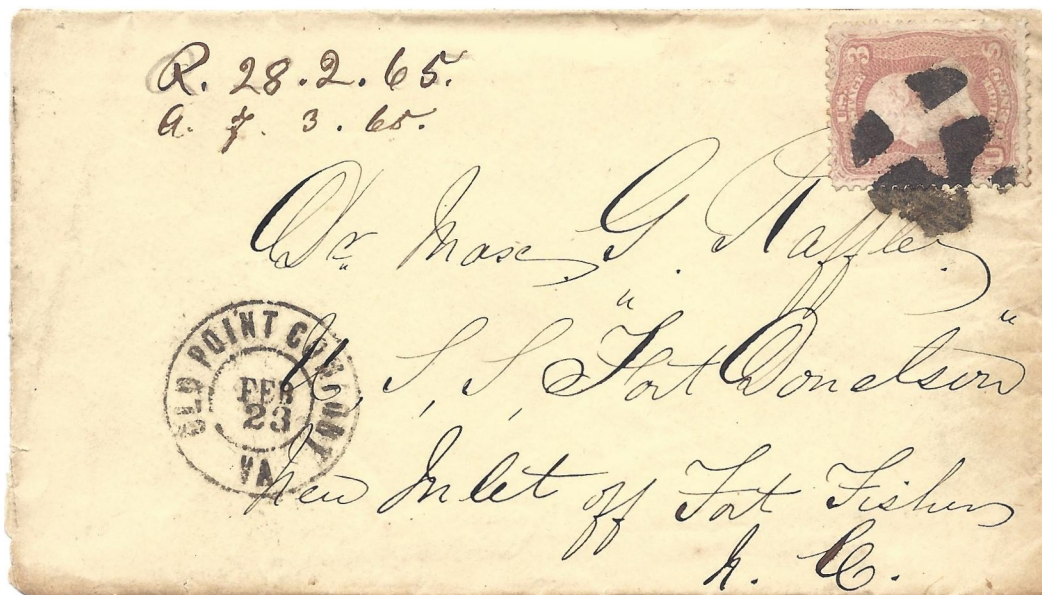 R. 28.2.65.
a. 7. 3. 65.
3
Dr. Max G. Raffler
U. S. S. "Fort Donelson"
New Inlet off Fort Fisher
N. C.
OLD POINT COMFORT
FEB
23
VA